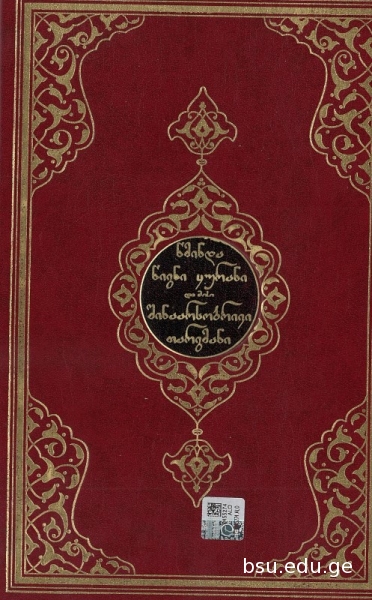 წმინდა
წიგნი ყურანი
და მისი
შინაარსობრივი
თარგმანი
bsu.edu.ge